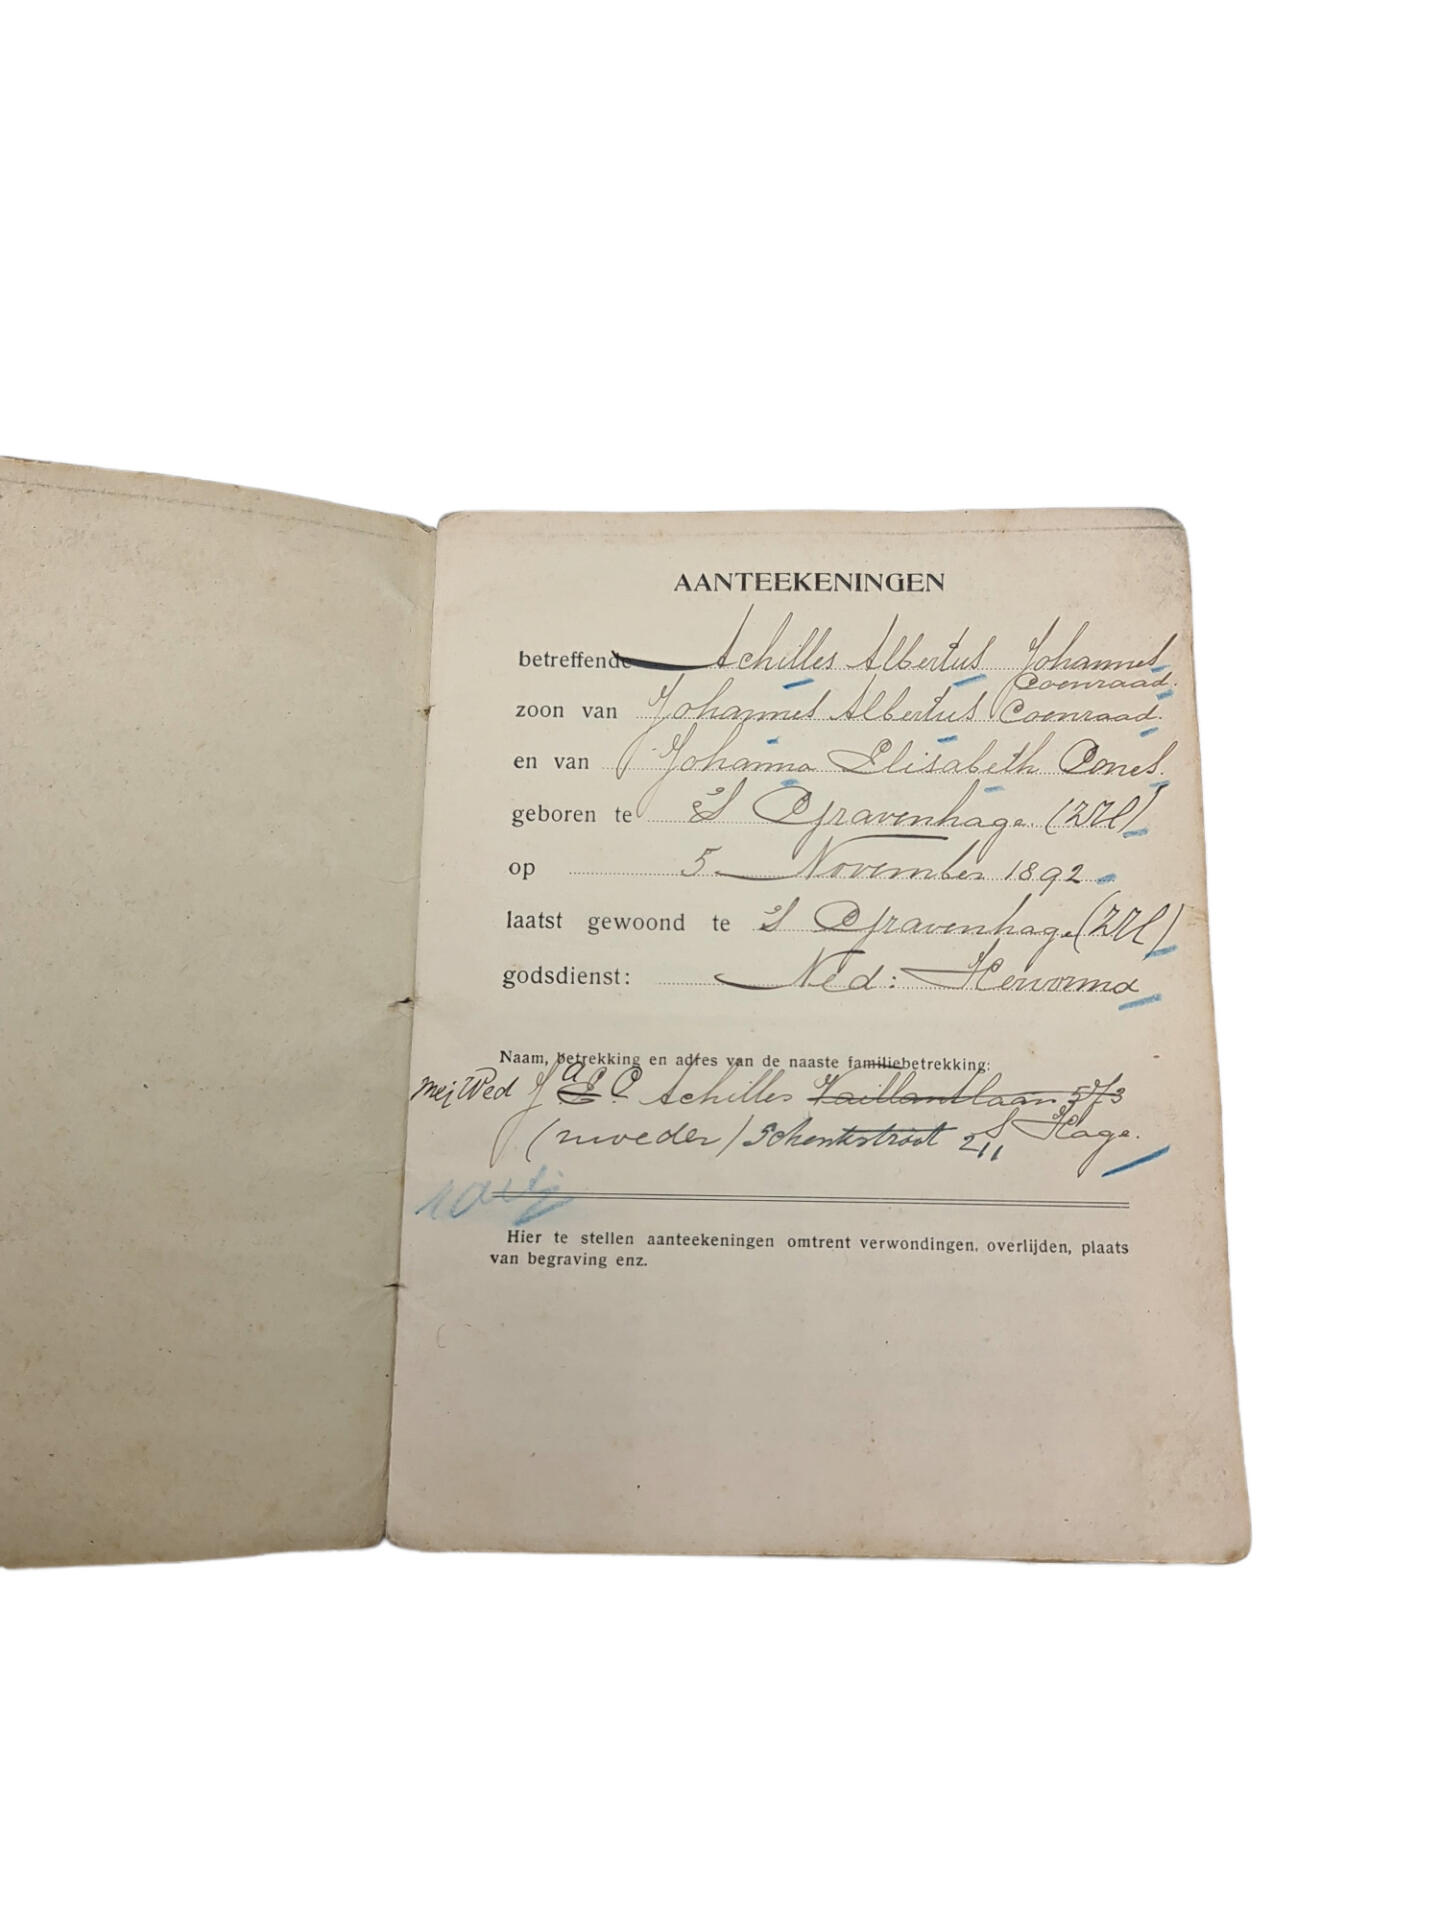 AANTEEKENINGEN
betreffende Achilles Albertus Johannes
Coenraad.
zoon van Johannes Albertus Coenraad.
en van Johanna Elisabeth Cones.
geboren te 's Gravenhage. (ZHl)
op 5 November 1892
laatst gewoond te 's Gravenhage (ZHl)
godsdienst: Ned: Hervormd
Naam, betrekking en adres van de naaste familiebetrekking:
Mej Wed J A E C Achilles Vaillantlaan 573
(moeder) Schenkstraat 211 S Hage.
Hier te stellen aanteekeningen omtrent verwondingen, overlijden, plaats
van begraving enz.